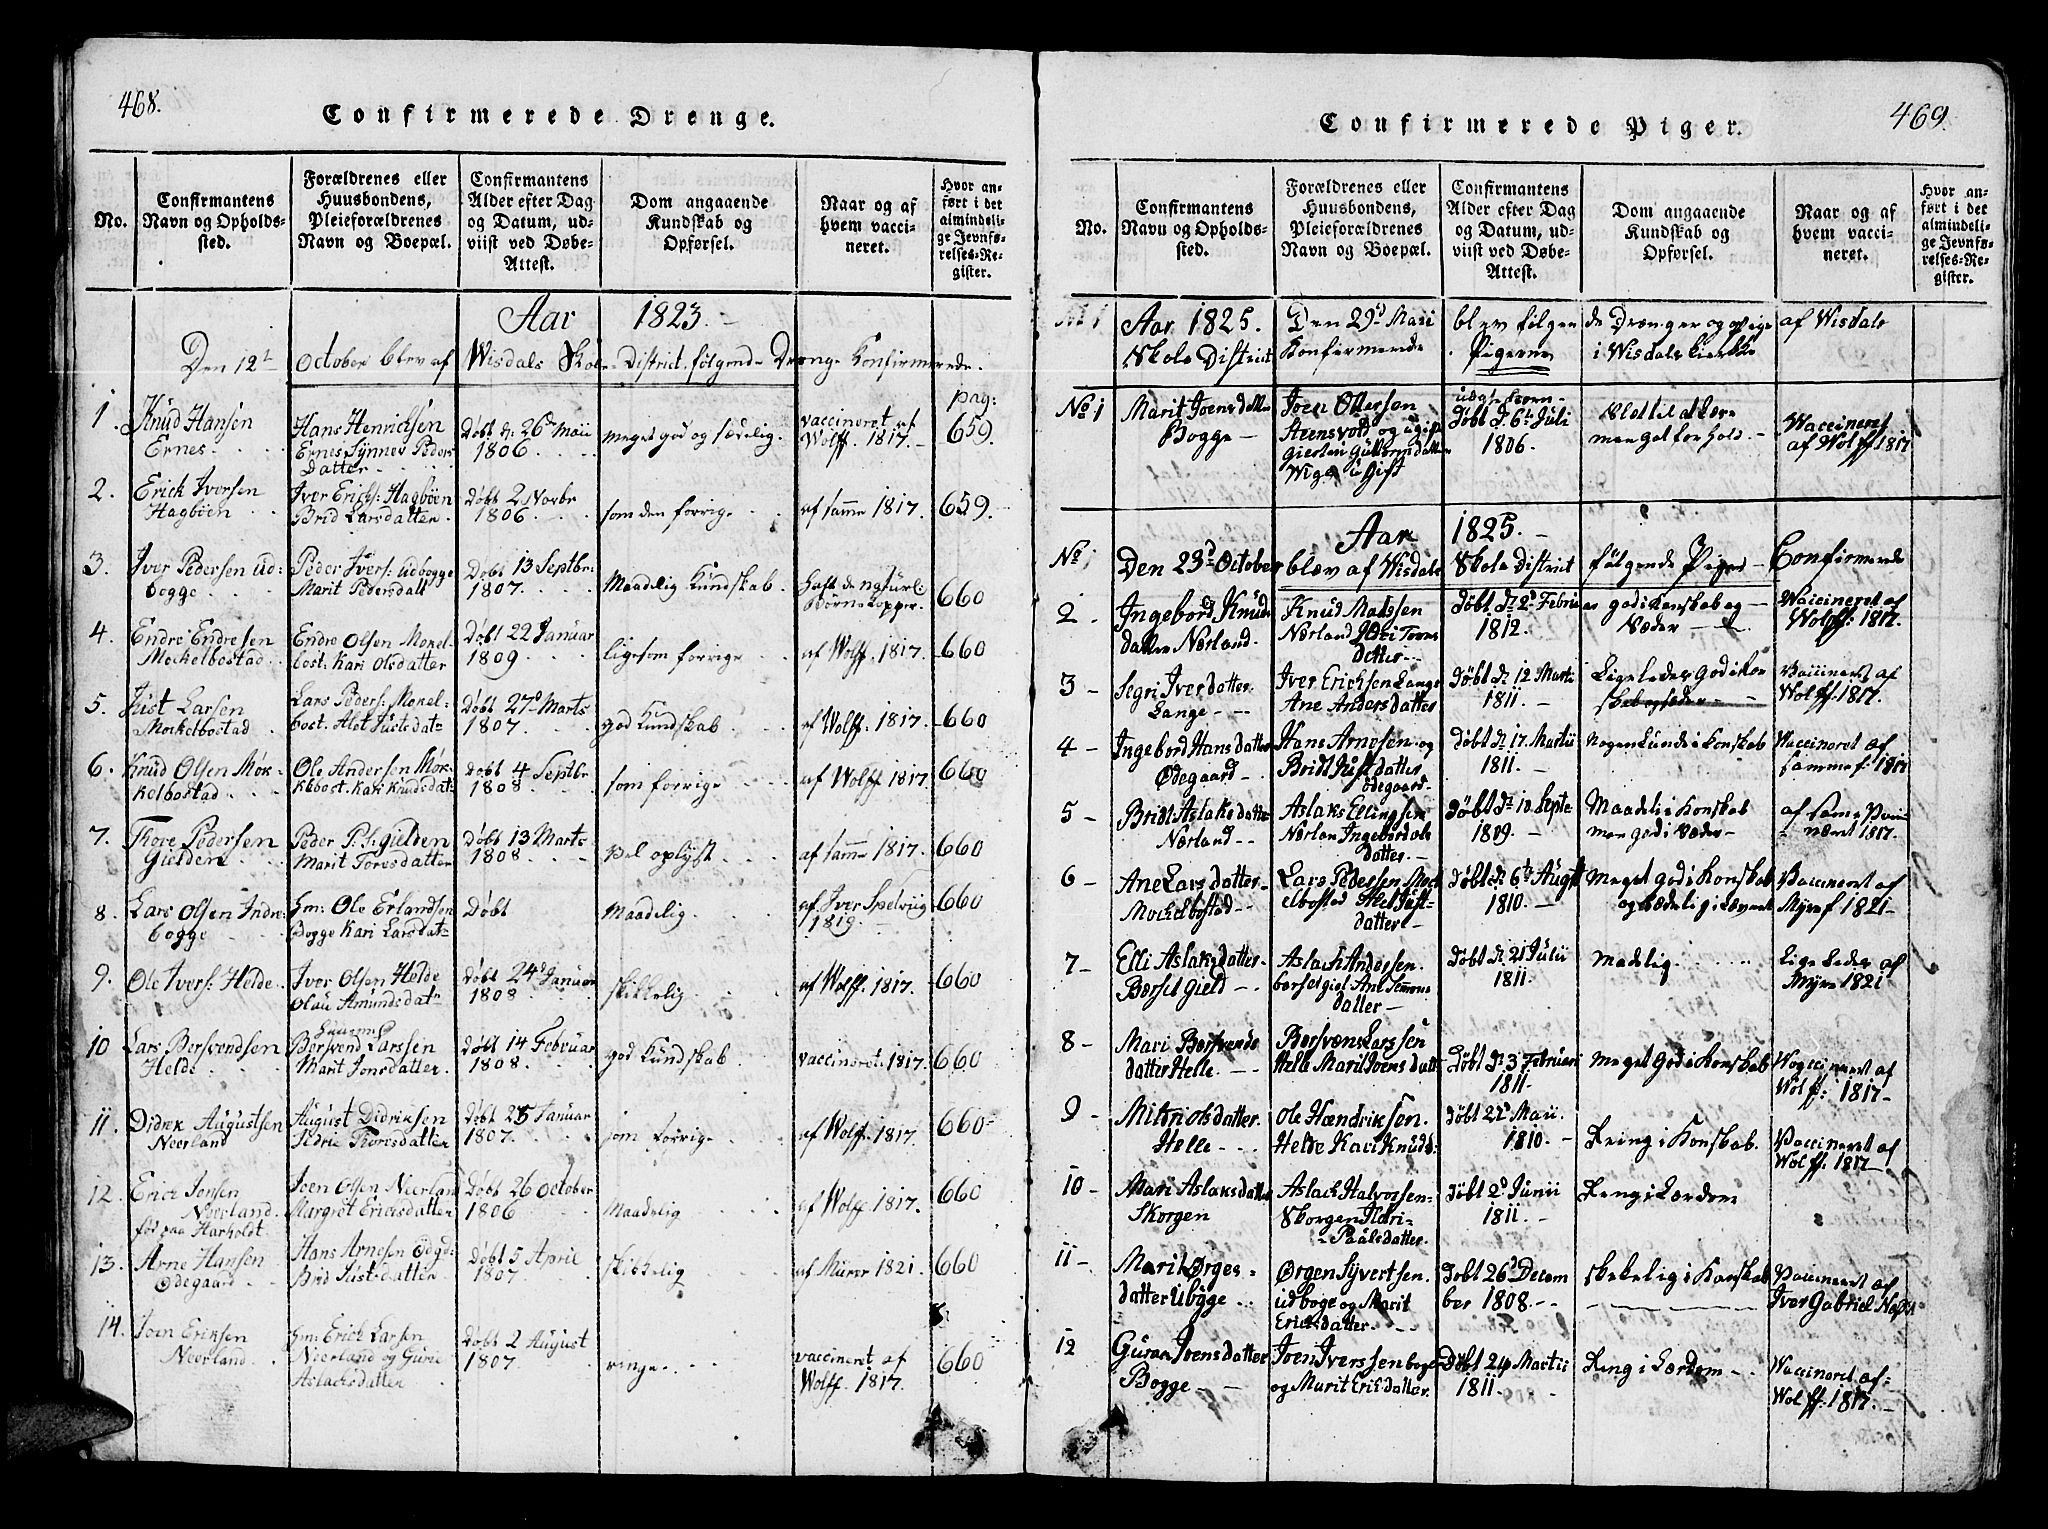 468.
Confirmerede Drenge.
No.
Confirmantens
Navn og Opholds-
sted.
Forældrenes eller
Huusbondens,
Pleieforældrenes
Navn og Boepæl.
Confirmantens
Alder efter Dag
og Datum, ud-
viist ved Døbe-
Attest.
Dom angaaende
Kundskab og
Opførsel.
Naar og af
hvem vacci-
neret.
Hvor an-
ført i det
almindeli-
ge Jevnfø-
relses-Re-
gister.
Aar 1823.
Den 12te October blev af Wisdals Skole-District følgende Drenge Konfirmerede.
pag:
1. Knud Hansen
Ernes.
Hans Henrichsen
Ernes Synnev Peders
Datter
Døbt d. 26de Maii
1806.
meget god og sædelig.
vaccineret af
Wolff. 1817.
659.
2. Erick Iversen
Hagbøen
Iver Erichs: Hagbøen
Brid Larsdatter.
Døbt 2 Novbr
1806.
som den forrige
af samme 1817.
659.
3. Iver Pedersen ud-
bogge
Peder Ivers: Udbogge
Marit Pedersdatt
Døbt 13 Septbr:
1807.
Maadelig Kundskab
haft de naturl:
Børnekopper.
660
4. Endre Endresen
Mockelbostad
Endre Olsen Mokel-
bost: Kari Olsdatter
Døbt 22 Januar
1809
ligesom forrige
af Wolff. 1817.
660
5. Just Larsen
Mockelbostad
Lars Peders: Mokel-
bost: Alet Justsdat-
Døbt 27de Marts
1807.
god Kundskab
af Wolff. 1817.
660
6. Knud Olsen Møk-
kelbostad
Ole Andersen Møk-
kelbost: Kari Knudsdat-
Døbt 4 Septbr
1808
som forrige
af Wolff 1817.
660
7. Thore Pedersen
Gielden
Peder P.S. Gielden
Marit Toresdatter
Døbt 13 Marts
1808.
vel oplyst
af samme 1817.
660
8. Lars Olsen Indre
bogge
Hm: Ole Erlandsen
Bogge Kari Larsdat-
Døbt
Maadelig
af Iver
1819.
660
9. Ole Ivers: Helde
Iver Olsen Helde
Olau Amundsdat-
Døbt 24de Januar
1808
skikkelig
af Wolff. 1817.
660
10 Lars Bersvendsen
Helde
Bersvend Larssen
Marit Jonsdatter
Døbt 14 Februar
1808.
god Kundskab
vaccineret: 1817.
660
11. Didrik Augustsen
Neerland
August Didriksen
Sidrie Thoresdatter
Døbt 25 Januar
1807.
som forrige
af Wolff. 1817.
660
12. Erick Jonsen
Neerland.
fød paa Harholdt.
Joen Olsen Neerland
Margret Ericksdatter
Døbt 26 October
1806
Maadelig
af Wolff. 1817.
660
13. Arne Hansen
Ødegaard
Hans Arnesen Ødgd:
Brid Justsdatter
Døbt 5 April
1807.
skikkelig
af Mürer 1821.
660
14. Joen Eriksen
Neerland
Hm: Erick Larsen
Neerland og Gurie
Aslacksdatter
Døbt 2 August
1807.
ringe.
vaccineret af
Wolff. 1817.
660
469.
Confirmerede Piger.
No.
Confirmantens
Navn og Opholds-
sted.
Forældrenes eller
Huusbondens,
Pleieforældrenes
Navn og Boepæl.
Confirmantens
Alder efter Dag
og Datum, ud-
viist ved Døbe-
Attest.
Dom angaaende
Kundskab og
Opførsel.
Naar og af
hvem vacci-
neret.
Hvor an-
ført i det
almindeli-
ge Jevnfø-
relses-Re-
gister.
Aar 1825. Den 29d Maii blev følgen de Drenger og piger af Wisdals
Skole District Konfirmerede i Wisdals Kierkke
Pigerne
No 1 Marit Joensdatter
Bogge
Joen Ottersen
Steensvold og
Gullormsdatter
Wige u Gift
uægte
Døbt d. 6te Juli
1806.
Slet til at lære
Waccineret
af Wolff 1817
Aar 1825.
No 1 Den 23d October blev af Wisdals Skole District følgende Piger Confirmerede
2. Ingebord Knuds
datter Nerland.
Knud Madssen
Nærland
Datter
Døbt d. 2d Februe
1812.
god i Kenskab og
Sæder
Waccineret af
Wolff: 1817.
3 Segri Iverdatter
Lange
Iver Ericksen Lange
Ane Andersdatter
Døbt d. 12 Marti
1811.
Ligeleder God i Kon
skab og sæder
Vaccineret af
Wolff: 1817.
4 Ingebord Hansdatter
Ødegaard
Hans Arnesen og
Bridt Justdatter
Ødegaard
Døbt d. 17 Martii
1811.
Nogenlunde i Konskab
Vaccineret af
samme: 1817
5 Bridt Aslaksdatter
Nærland
Aslak Ellingsen
Nærlan Ingebord ols
datter
Døbt d. 10 Septe
1809.
Maadeli i Konskab
men god i Sæder
af same
1817.
6 Ane Larsdatter
Mockelbostad
Lars Pedersen Mock
elbostad Alet Just-
datter
Døbt d. 6te August
1810.
Meget God i Konskab
Vaccineret af
Myre 1821
7 Elli Aslaksdatter
Børset gield
Aslach Andersen.
børsetgiel Ane
datter
Døbt d. 21 Julii
1811.
Madelig
Lige Leder af
Myre 1821
8 Mari Børsvends
datter Helle
Børsvens Larssen
Helle Marit Joensdatt
Døbt d. 3 Februari
1811.
Meget God i Konskab
Vaccineret af
Wolff: 1817
9 Miten olsdatter.
Helle
Ole Hændriksen.
Helde Kari Knuds:
Døbt 22d Maii
1810.
Reing i Konskab.
Vaccineret af
Wolff: 1817
10 Mari Aslaksdatter
Skorgen
Aslach Halvorsen
Skorgen Ildri
Paalsdatter
Døbt 2d Junii
1811.
Reng i Lærdom
11 Marit Ørges
datter Ubøge
Ørgen Syvertsen.
udboge og Marit
Ericksdatter.
Døbt 26d Decem
ber 1808.
skekelig i Konskab
Vaccineret af
Iver Gabriel
12 Guran Joensdatter
Bogge
Joen Iverssen boge
og Marit Eriksdatter.
Døbt 24 Martii
1811.
Reng i Lærdom.
Vaccineret af:
Wolff: 1817.